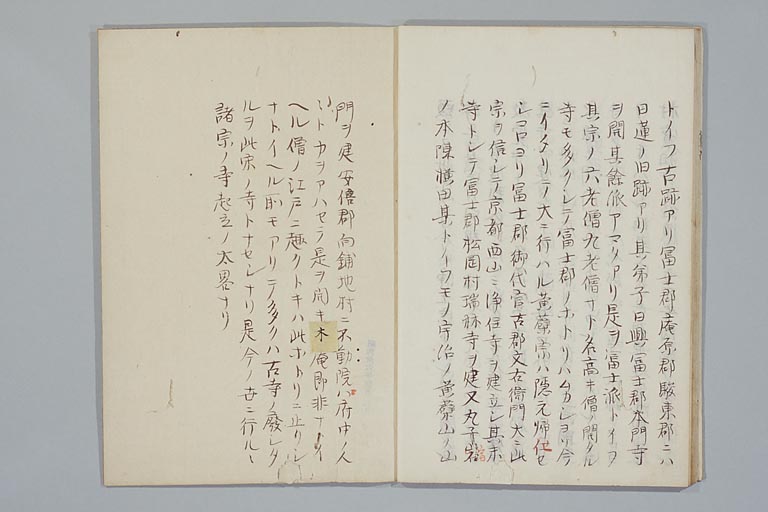 トイフ古跡アリ冨士郡庵原郡駿東郡ニハ
日蓮ノ旧跡アリ其弟子日興冨士郡本門寺
ヲ開其餘流アマタアリ是ヲ冨士派トイフ
其宗ノ六老僧九老僧ナト名高キ僧ノ開タル
寺モ多クシテ冨士郡ノホトリハムカシヨリ今
ニイタリテ大ニ行ハル黄蘗宗ハ隠元帰化セ
シコロヨリ冨士郡御代官古郡文右衛門大ニ此
宗ヲ信シテ京都西山ニ浄住寺ヲ建立シ其末
寺トシテ冨士郡松岡村瑞林寺ヲ建又丸子宿
ノ本陳横田其トイフモノ宇治ノ黄蘗山ノ山
門ヲ建安倍郡向鋪地村ニ不動院ハ府中ノ人
〻トカヲアハセテ是ヲ開キ木庵即非ナトイ
ヘル僧ノ江戸ニ趣クトキハ此ホトリニ止リシ
ナトイヘル所モアリテ多クハ古寺ノ廢シタ
ルヲ此宗ノ寺トナセシナリ是今ノ世ニ行ルヽ
諸宗ノ寺起立ノ大畧ナリ